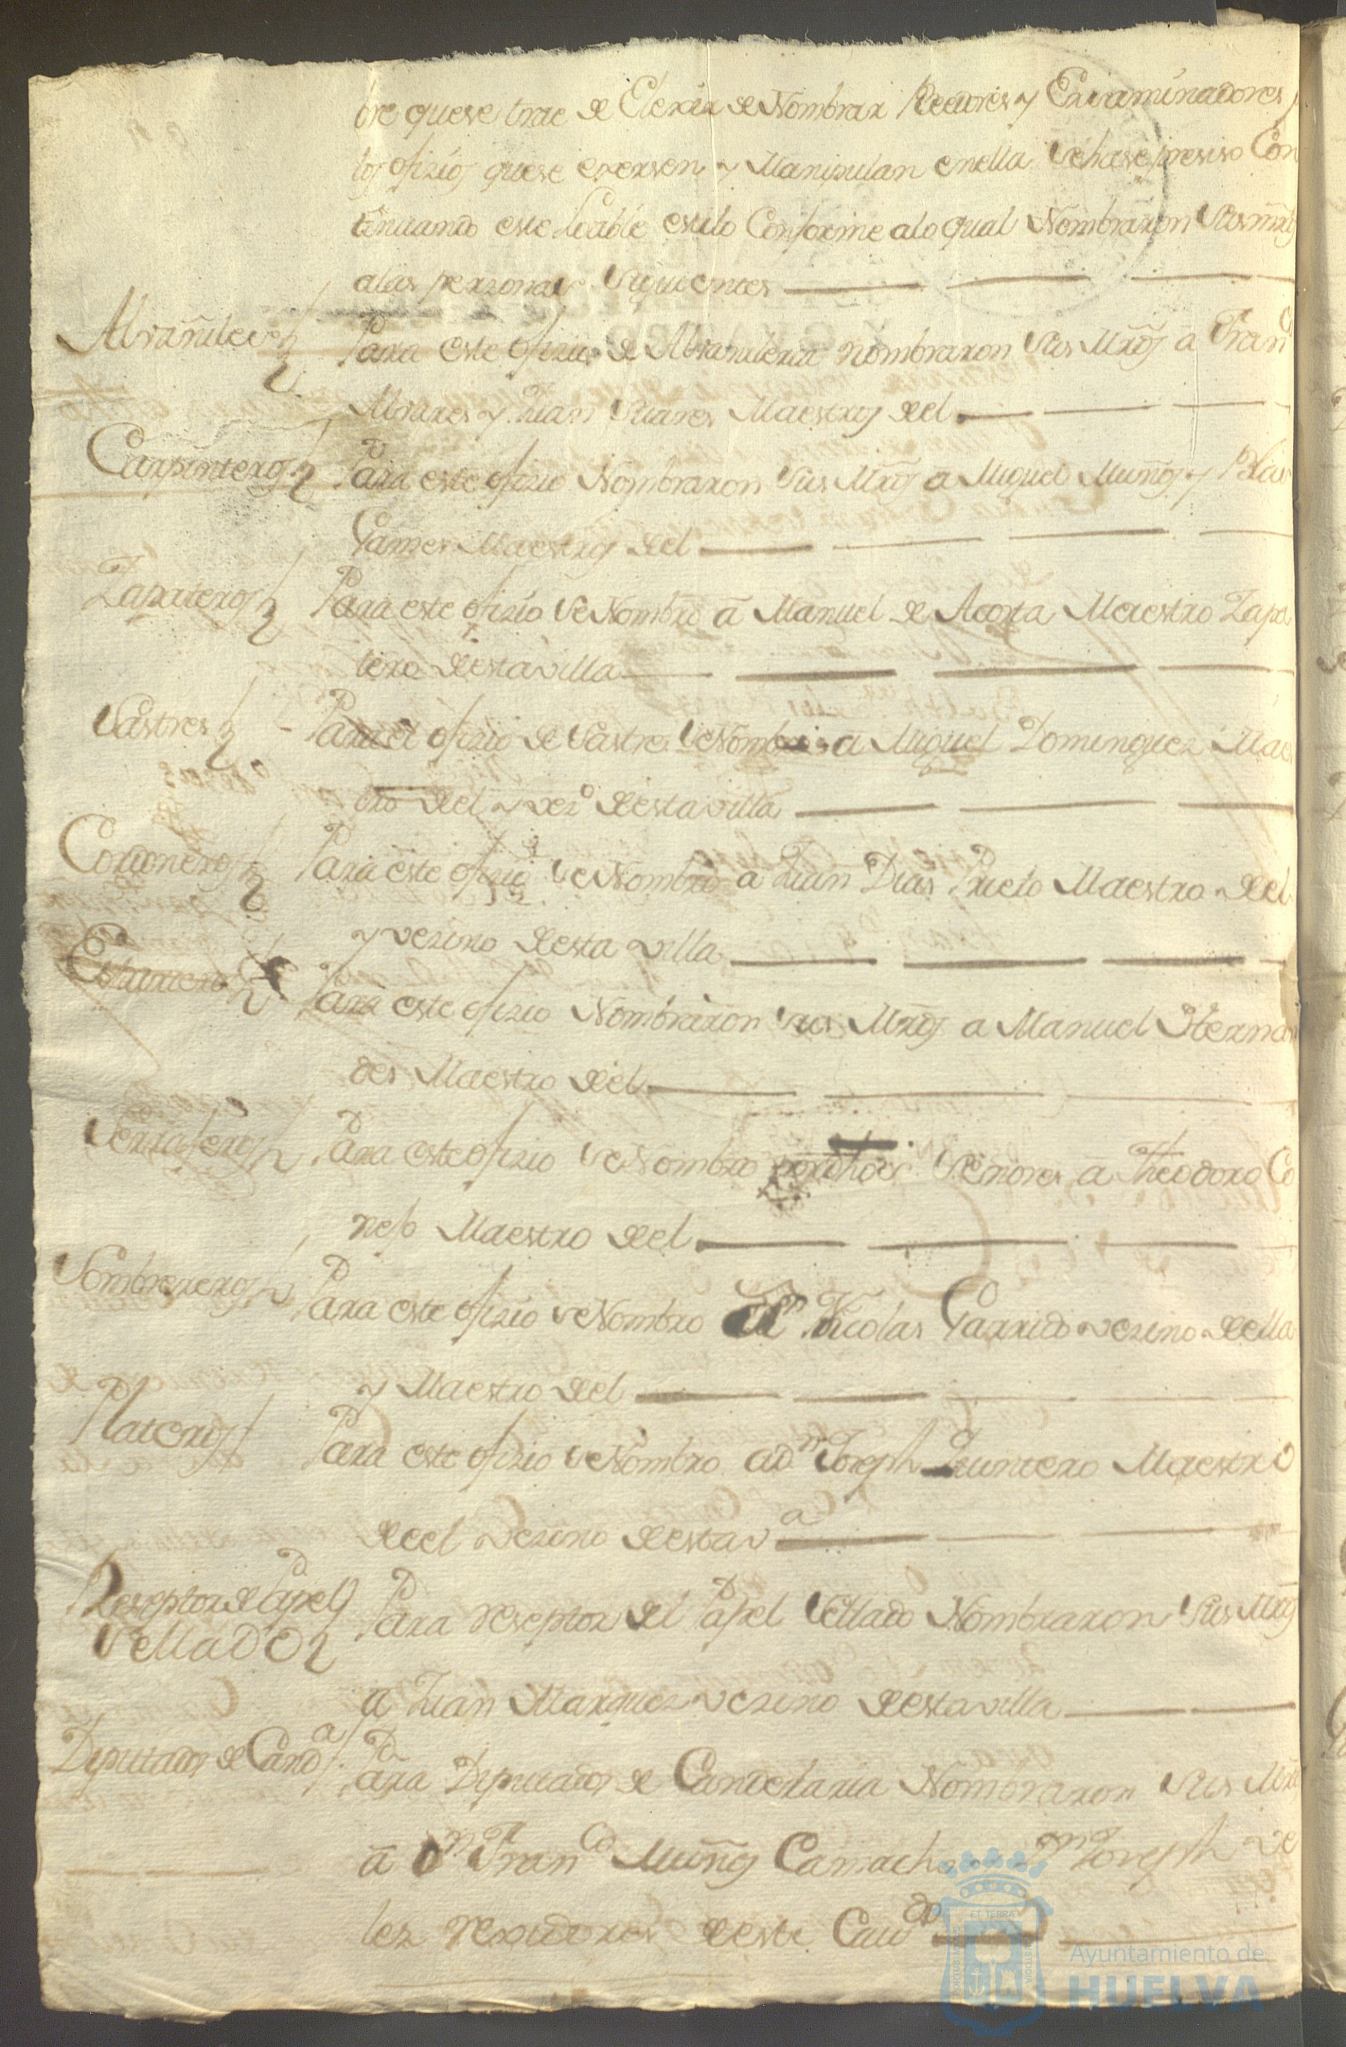 bre que se trae de Elexir de Nombrar Beedores y Exsaminadores
los ofizios que se exersen y Manipulan en ella Se hase presiso Con
tinuando este loable estilo Conforme a lo qual Nombraron Sus mrds
a las perzonas Siguientes
Alvañiles Para este ofizio de Alvañileria nombraron Sus Mrds â Franco
Morares y Juan Suares Maestros del
Carpinteros Para este ofizio Nombraron Sus Mrds a Miguel Muños y Blas
Gamez Maestros del
Zapateros Para este ofizio Se Nombro â Manuel de Acosta Maestro Zapa
tero de esta villa
Sastres Para el ofizio de Sastre Se Nombro a Miguel Dominguez Maes
tro del y vezo de esta villa
Cordoneros Para este ofizio Se Nombro a Juan Dias Prieto Maestro del
y vezino de esta villa
Para este ofizio Nombraron Sus Mrds a Manuel Hernan
des Maestro del
Serrajeros Para este ofizio Se Nombro por dhos Señores â Theodoro Co
nejo Maestro del
Sombrereros Para este ofizio Se Nombro Nicolas Garrido vezino de ella
y Maestro del
Plateros Para este ofizio Se Nombro a Dn Joseph Quintero Maestro
de el Vezino de esta va
Reseptor de Papel Para reseptor del Papel Sellado Nombraron Sus Mrds
Sellado
a Juan Marquez vezino de esta villa
Diputados de Canda Para Diputados de Candelaria Nombraron Sus Mrds
â Dn Franco Muños Camacho y Dn Joseph Ve
lez rexidores de este Cavdo
Ayuntamiento de
HUELVA